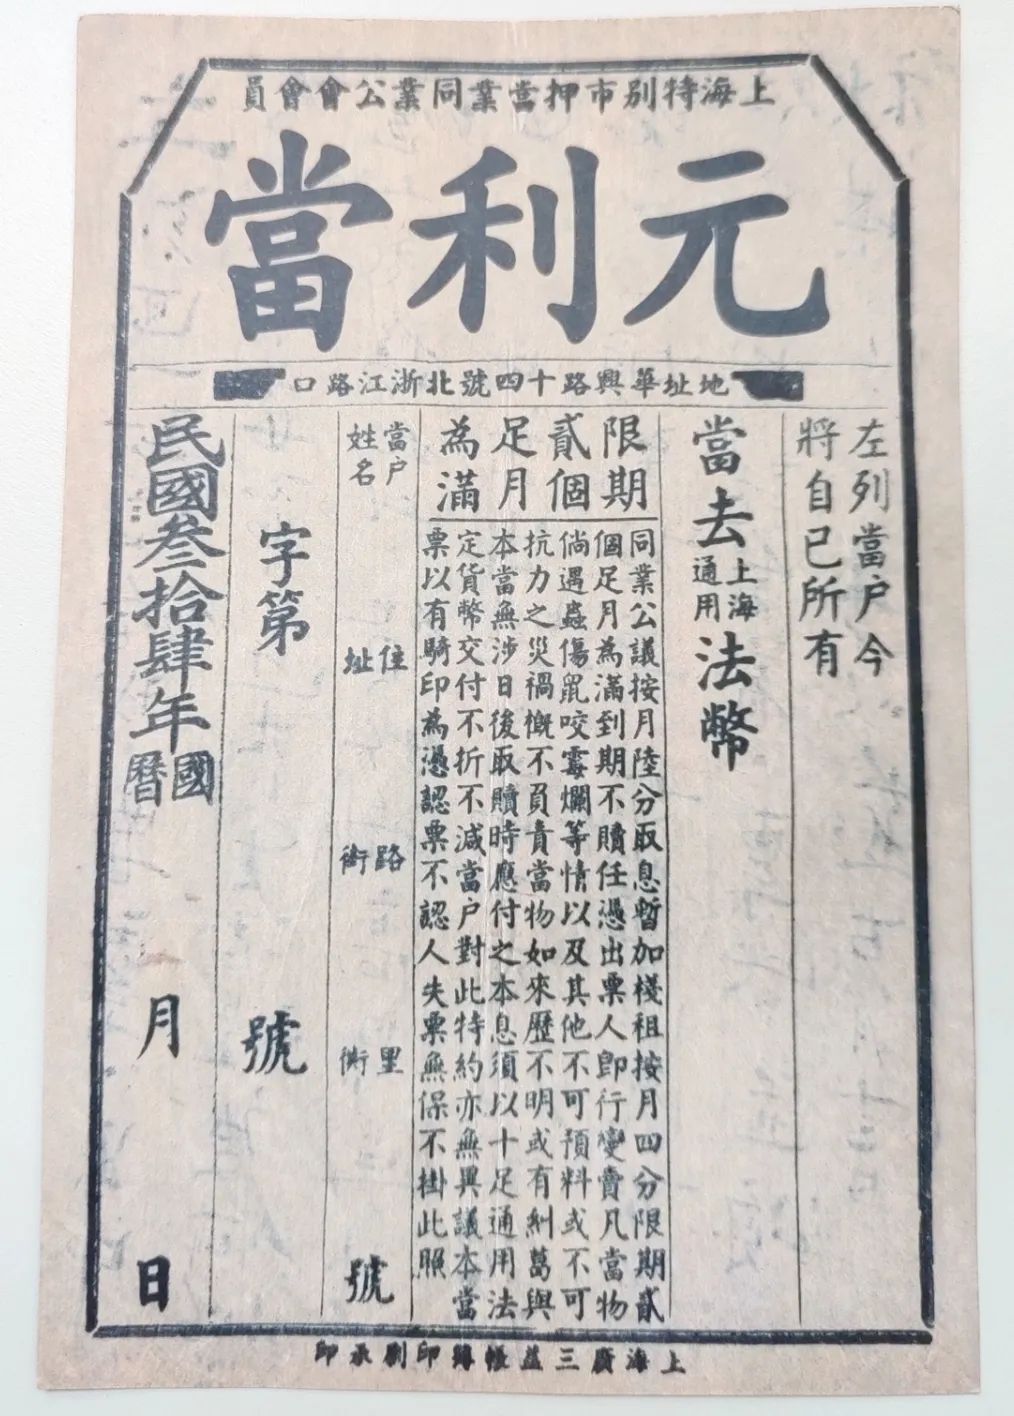 上海特別市押當業同業公會會員
元利當
地址華興路十四號北浙江路口
左列當户今
將自己所有
當去上海通用法幣
限期貳個足月為滿
同業公議按月陸分取息暫加棧租按月四分限期貳
個足月為滿到期不贖任憑出票人即行變賣凡當物
倘遇蟲傷鼠咬霉爛等情以及其他不可預料或不可
抗力之災禍概不負責當物如來歷不明或有糾葛與
本當無涉日後取贖時應付之本息須以十足通用法
定貨幣交付不折不減當户對此特約亦無異議本當
票以有騎印為憑認票不認人失票無保不掛此照
當户姓名
住址
路街
里衖
號
字第
號
民國叁拾肆年國曆
月
日
上海廣三益帳簿印刷承印